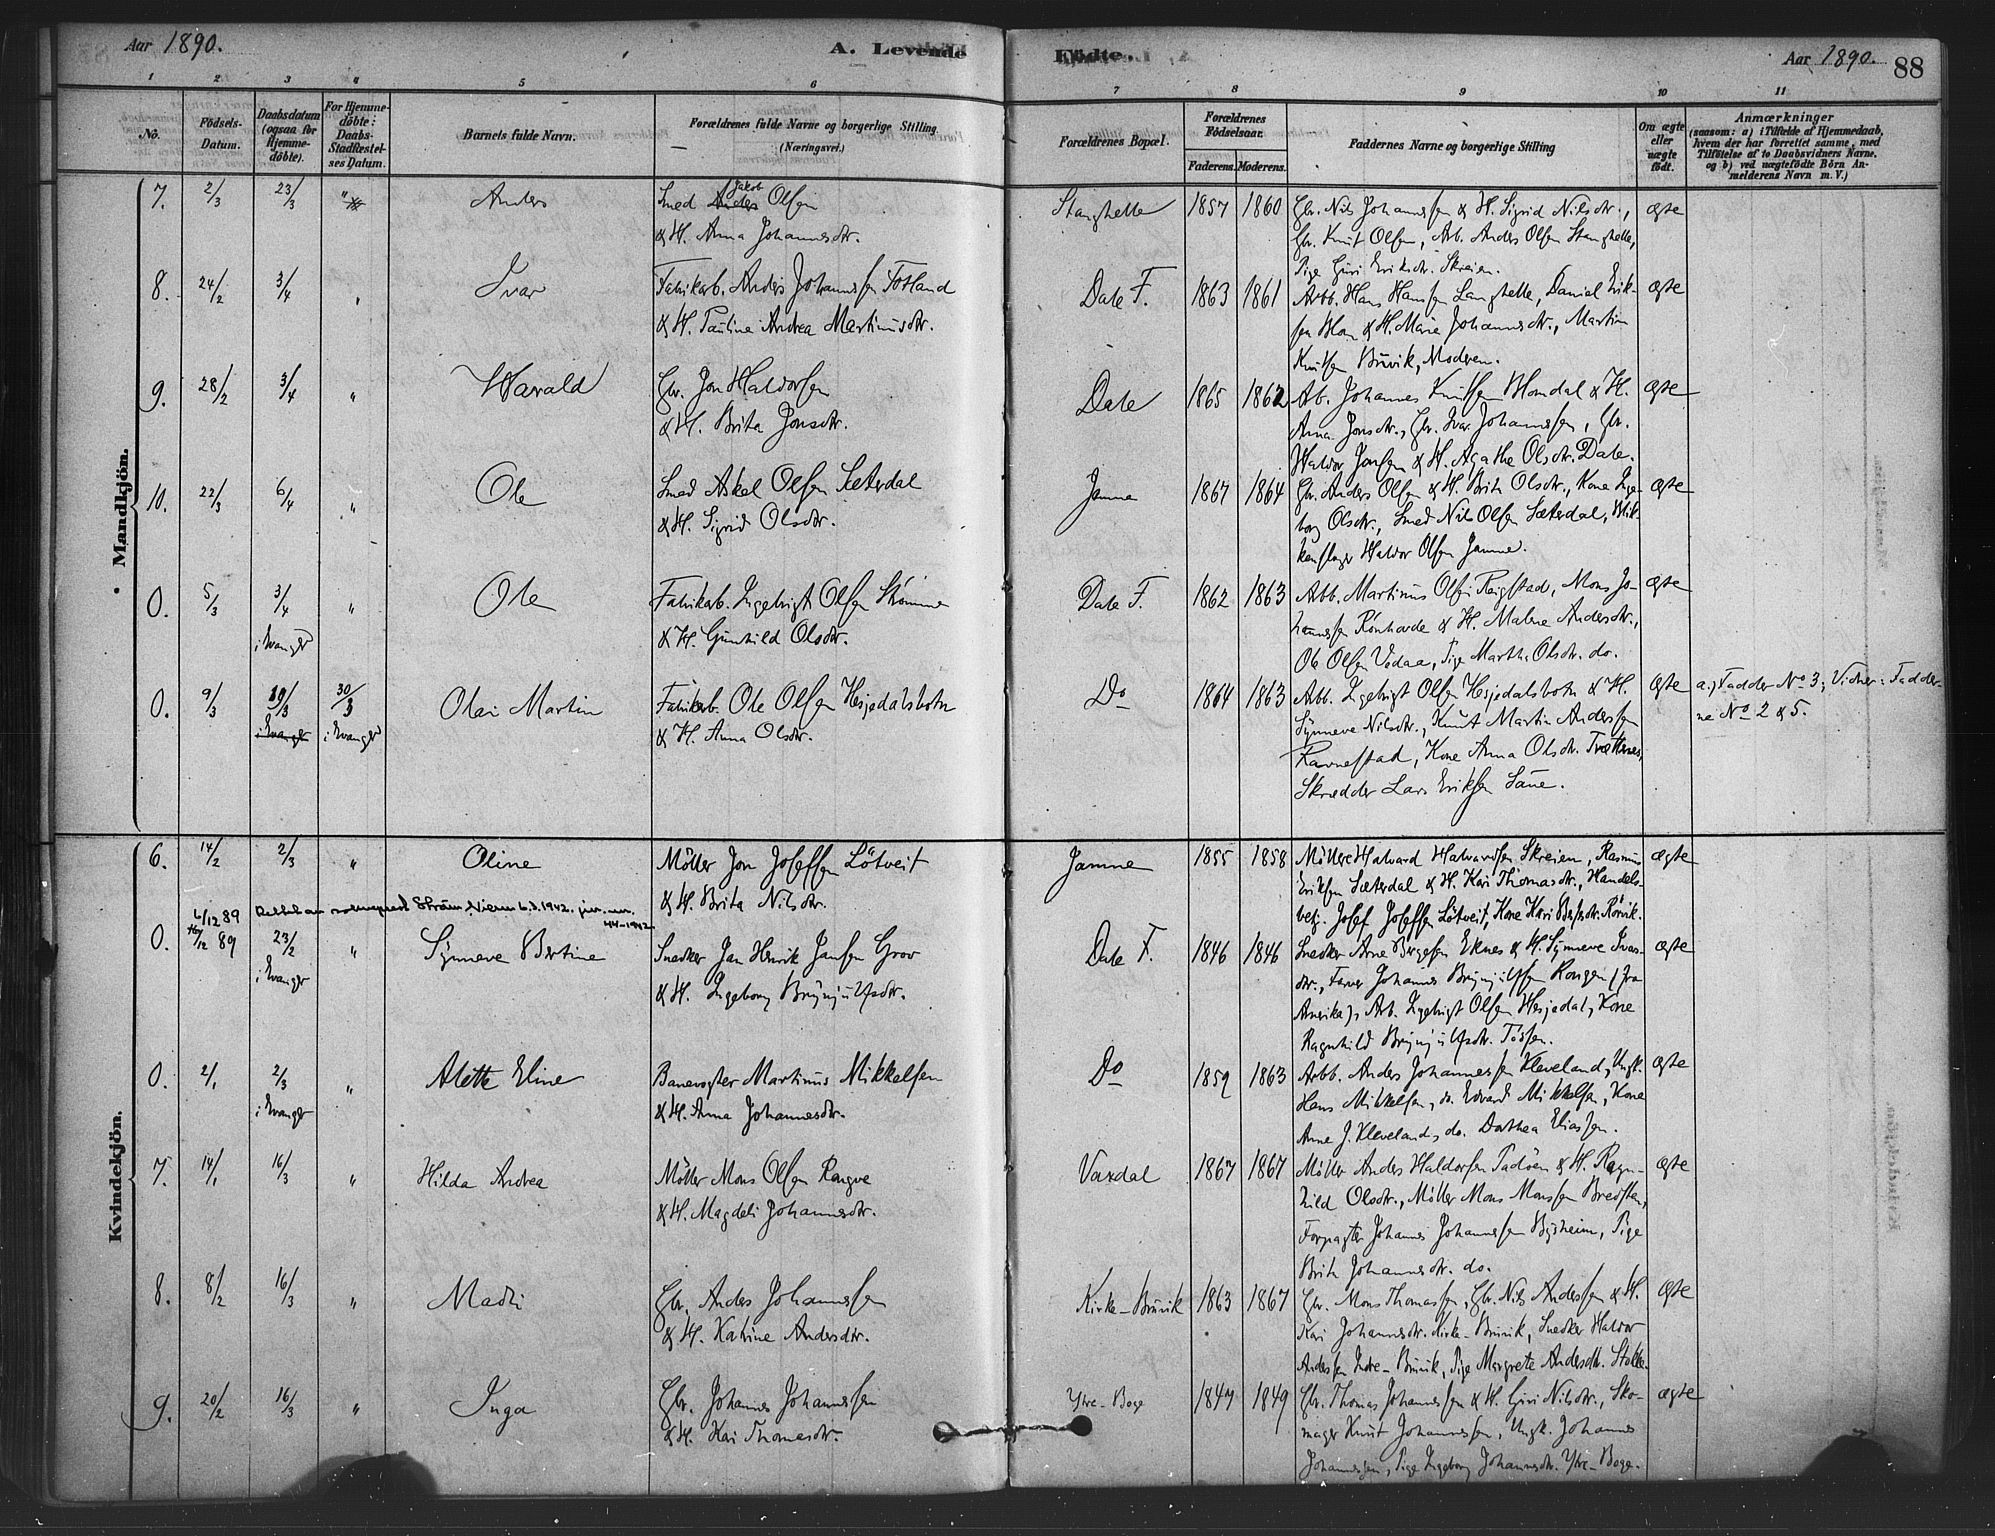 Aar 1890.
A. Levende
Fødte.
Aar 1890.
88
1 2 3 4 5 6 7 8 9 10 11
No.
Fødsels-Datum.
Daabsdatum (ogsaa for Hjemmedøbte).
For Hjemmedøbte: Daabs-Stadfæstelses Datum.
Barnets fulde Navn.
Forældrenes fulde Navne og borgerlige Stilling
(Næringsvei.)
Forældrenes Bopæl.
Forældrenes Fødselsaar.
Faderens. Moderens.
Faddernes Navne og borgerlige Stilling
Om ægte eller uægte født.
Anmærkninger
(saasom: a) i Tilfælde af Hjemmedaab, hvem der har forrettet samme, med Tilføielse af to Daabsvidners Navne, og b) ved uægtefødte Børn Anmelderens Navn m. V.)
Mandkjön.
7. 2/3 23/3 " Anders
Smed Anders Jakob Olsen
& H. Anna Johannesdtr.
Stanghelle 1857 1860
Gbr. Nils Johannessen & H. Sigrid Nilsdtr.,
Gbr. Knut Olsen, Arb. Anders Olsen Stanghelle,
Pige Guri Eriksdtr. Skreien.
ægte
8. 24/2 3/4 " Ivar
Fabrikarb. Anders Johannessen Fosland
& H. Paulina Andrea Martinusdtr.
Dale F. 1863 1861
Arbb. Hans Hansen Langhelle, Daniel Erik-
sen Blom & H. Marie Johannesdtr., Martin
Knutsen Bruvik, Moderen.
ægte
9. 28/2 3/4 " Harald
Gbr. Jon Haldorsen
& H. Brita Jonsdtr.
Dale 1865 1862
Arb. Johannes Knutsen Blomdal & H.
Anna Jonsdtr., Gbr. Ivar Johannessen, Gbr.
Haldor Jonsen & H. Agathe Olsdtr. Dale.
ægte
10. 22/3 6/4 " Ole
Smed Askel Olsen Sæterdal
& H. Sigrid Olsdtr.
Jamne 1867 1864
Gbr. Anders Olsen & H. Brita Olsdtr., Kone Inge-
borg Olsdtr., Smed Nils Olsen Sæterdal, Blik-
kenslager Haldor Olsen Jamne.
ægte
0. 5/3 3/4 i Evanger " Ole
Fabrikarb. Ingebrigt Olsen Strømme
& H. Gunhild Olsdtr.
Dale F. 1862 1863
Arbb. Martinus Olsen Reigstad, Mons Jo-
hannessen Rønhovde & H. Malene Andersdtr.,
Ole Olsen Vedaa, Pige Martha Olsdtr. do.
ægte
0. 9/3 19/3 i Evanger 30/3 i Evanger Olai Martin
Fabrikarb. Ole Olsen Hesjedalsbotn
& H. Anna Olsdtr.
Do 1864 1863
Arbb. Ingebrigt Olsen Hesjedalsbotn & H.
Synneve Nilsdtr., Knut Martin Andersen
Ravnestad, Kone Anna Olsdtr. Trættenes,
Skrædder Lars Eriksen Saue.
ægte
a., Fadder No 3; Vidner: Fadder-
ne No 2 & 5.
Kvindekjön.
6. 14/2 2/3 " Oline
Møller Jon Joseffsen Løtveit
& H. Brita Nilsdtr.
Jamne 1855 1858
Møller Halvard Halvardsen Skreien, Rasmus
Eriksen Sæterdal & H. Kari Thomasdtr., Handels-
betj. Josef Joseffsen Løtveit, Kone Kari Børsdtr. Rørvik.
ægte
6/12 89 6.3.1942. jnr. 44-1942
0. 16/12 89 23/2 i Evanger " Synneve Bertine
Snedker Jan Henrik Jansen Grov
& H. Ingeborg Brynjulfsdtr.
Dale F. 1846 1846
Snedker Arne Børgesen Eknes & H. Synneve Ivars-
dtr., Farver Johannes Brynjulfsen Rongen (fra
Amerika), Arb. Ingebrigt Olsen Hesjedal, Kone
Ragnhild Brynjulfsdtr. Fossen.
ægte
0. 2/1 2/3 i Evanger " Alette Eline
Banevogter Martinus Mikkelsen
& H. Anna Johannesdtr.
Do 1859 1863
Arbb. Anders Johannessen Kleveland, Ungk.
Hans Mikkelsen, do. Edvard Mikkelsen, Kone
Anne J. Kleveland, do. Dorthea Eliassen.
ægte
7. 14/1 16/3 " Hilda Andrea
Møller Mons Olsen Rongve
& H. Magdeli Johannesdtr.
Vaxdal 1867 1867
Møller Anders Haldorsen Tadøen & H. Ragn-
hild Olsdtr., Møller Mons Monssen Bredsten,
Forpagter Johannes Johannessen Bysheim, Pige
Brita Johannesdtr. do.
ægte
8. 8/2 16/3 " Madli
Gbr. Anders Johannessen
& H. Katrine Andersdtr.
Kirke-Bruvik 1863 1867
Gbr. Mons Thomassen, Gbr. Nils Anderssen & H.
Kari Johannesdtr. Kirke-Bruvik, Snedker Haldor
Anderssen Indre-Bruvik, Pige Margrete Andersdtr. Stokke.
ægte
9. 20/2 16/3 " Inga
Gbr. Johannes Johannessen
& H. Kari Thomasdtr.
Ytre-Boge 1847 1849
Gbr. Thomas Johannessen & H. Guri Nilsdtr., Sko-
mager Knut Johannessen, Ungk. Johannes
Johannessen, Pige Ingeborg Johannesdtr. Ytre-Boge.
ægte